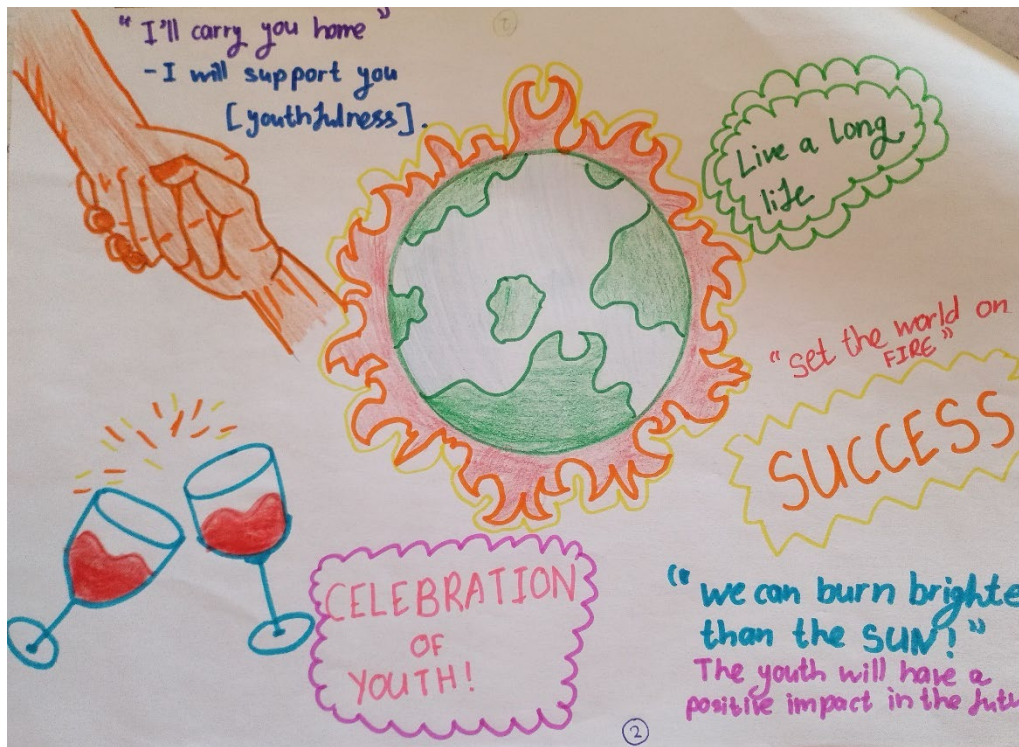 "I'll carry you home"
- I will support you
[youthfulness].
Live a long
life
"Set the world on
FIRE"
SUCCESS
CELEBRATION
OF
YOUTH!
"We can burn brighte
than the SUN!"
The youth will have a
positive impact in the futu
2